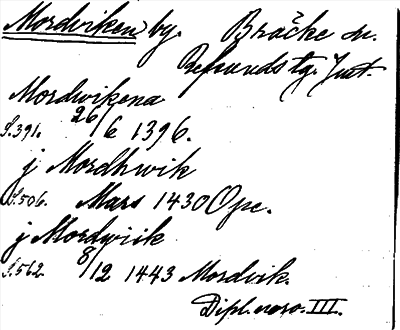 Mordviken by. Bräcke sn.
Refsunds tg. Jmt.
Mordwikena
S.391. 26/6 1396.
j Mordhwik
S.506. Mars 1430 Opr.
j Mordwiik
S.562. 8/12 1443 Mordvik.
Dipl. norv. III.